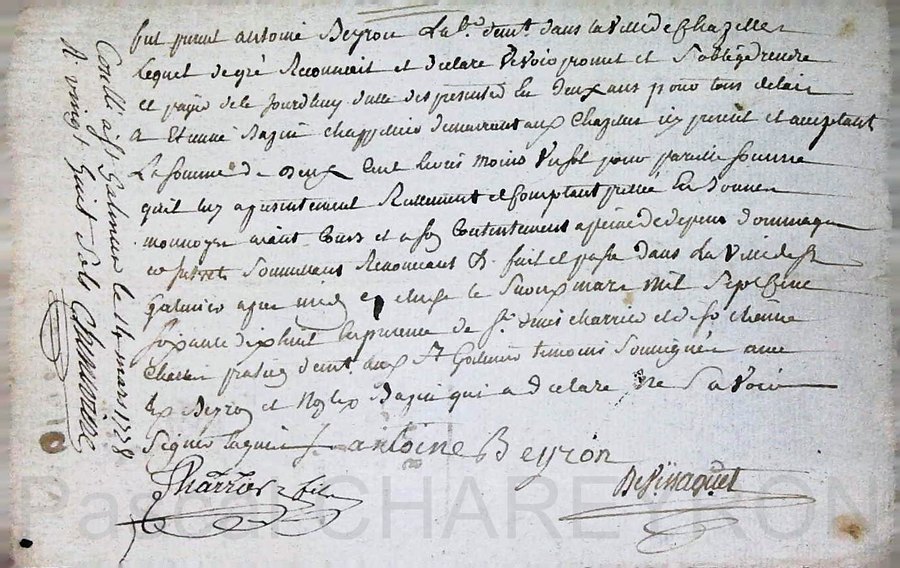 fut present antoine Beyron lab.r demt. dans la ville de Chazelles
lequel de gré Reconnoit et declare devoir promet et s'oblige rendre
et payer de ce jourdhuy datte des presentes en deux ans pour tous delais
a Etienne Bazin chappellier demeurant aux Chazelles icy present et acceptant
La somme de deux cent livres moins un sol pour pareille somme
qu'il luy a presentement Reellement et comptant prettée en bonne
monnoye aiant Cours et a son Contentement a peine de depens dommages
interets soumettant Renonceant &. fait et passé dans La ville de St
Galmier apres midy le mars mil sept cens
soixante dix huit En presence de Sr. Charrier et de Sr Etienne
praticien demt. aux St Galmier temoins soussignés avec
led Beyron et non led Bazin qui a declaré ne savoir
signer enquis &. antoine Beyron
Charrier fils
Conllé a St Galmier le 14 mars 1778
R. vingt huit sols
Pascal CHAREYRON